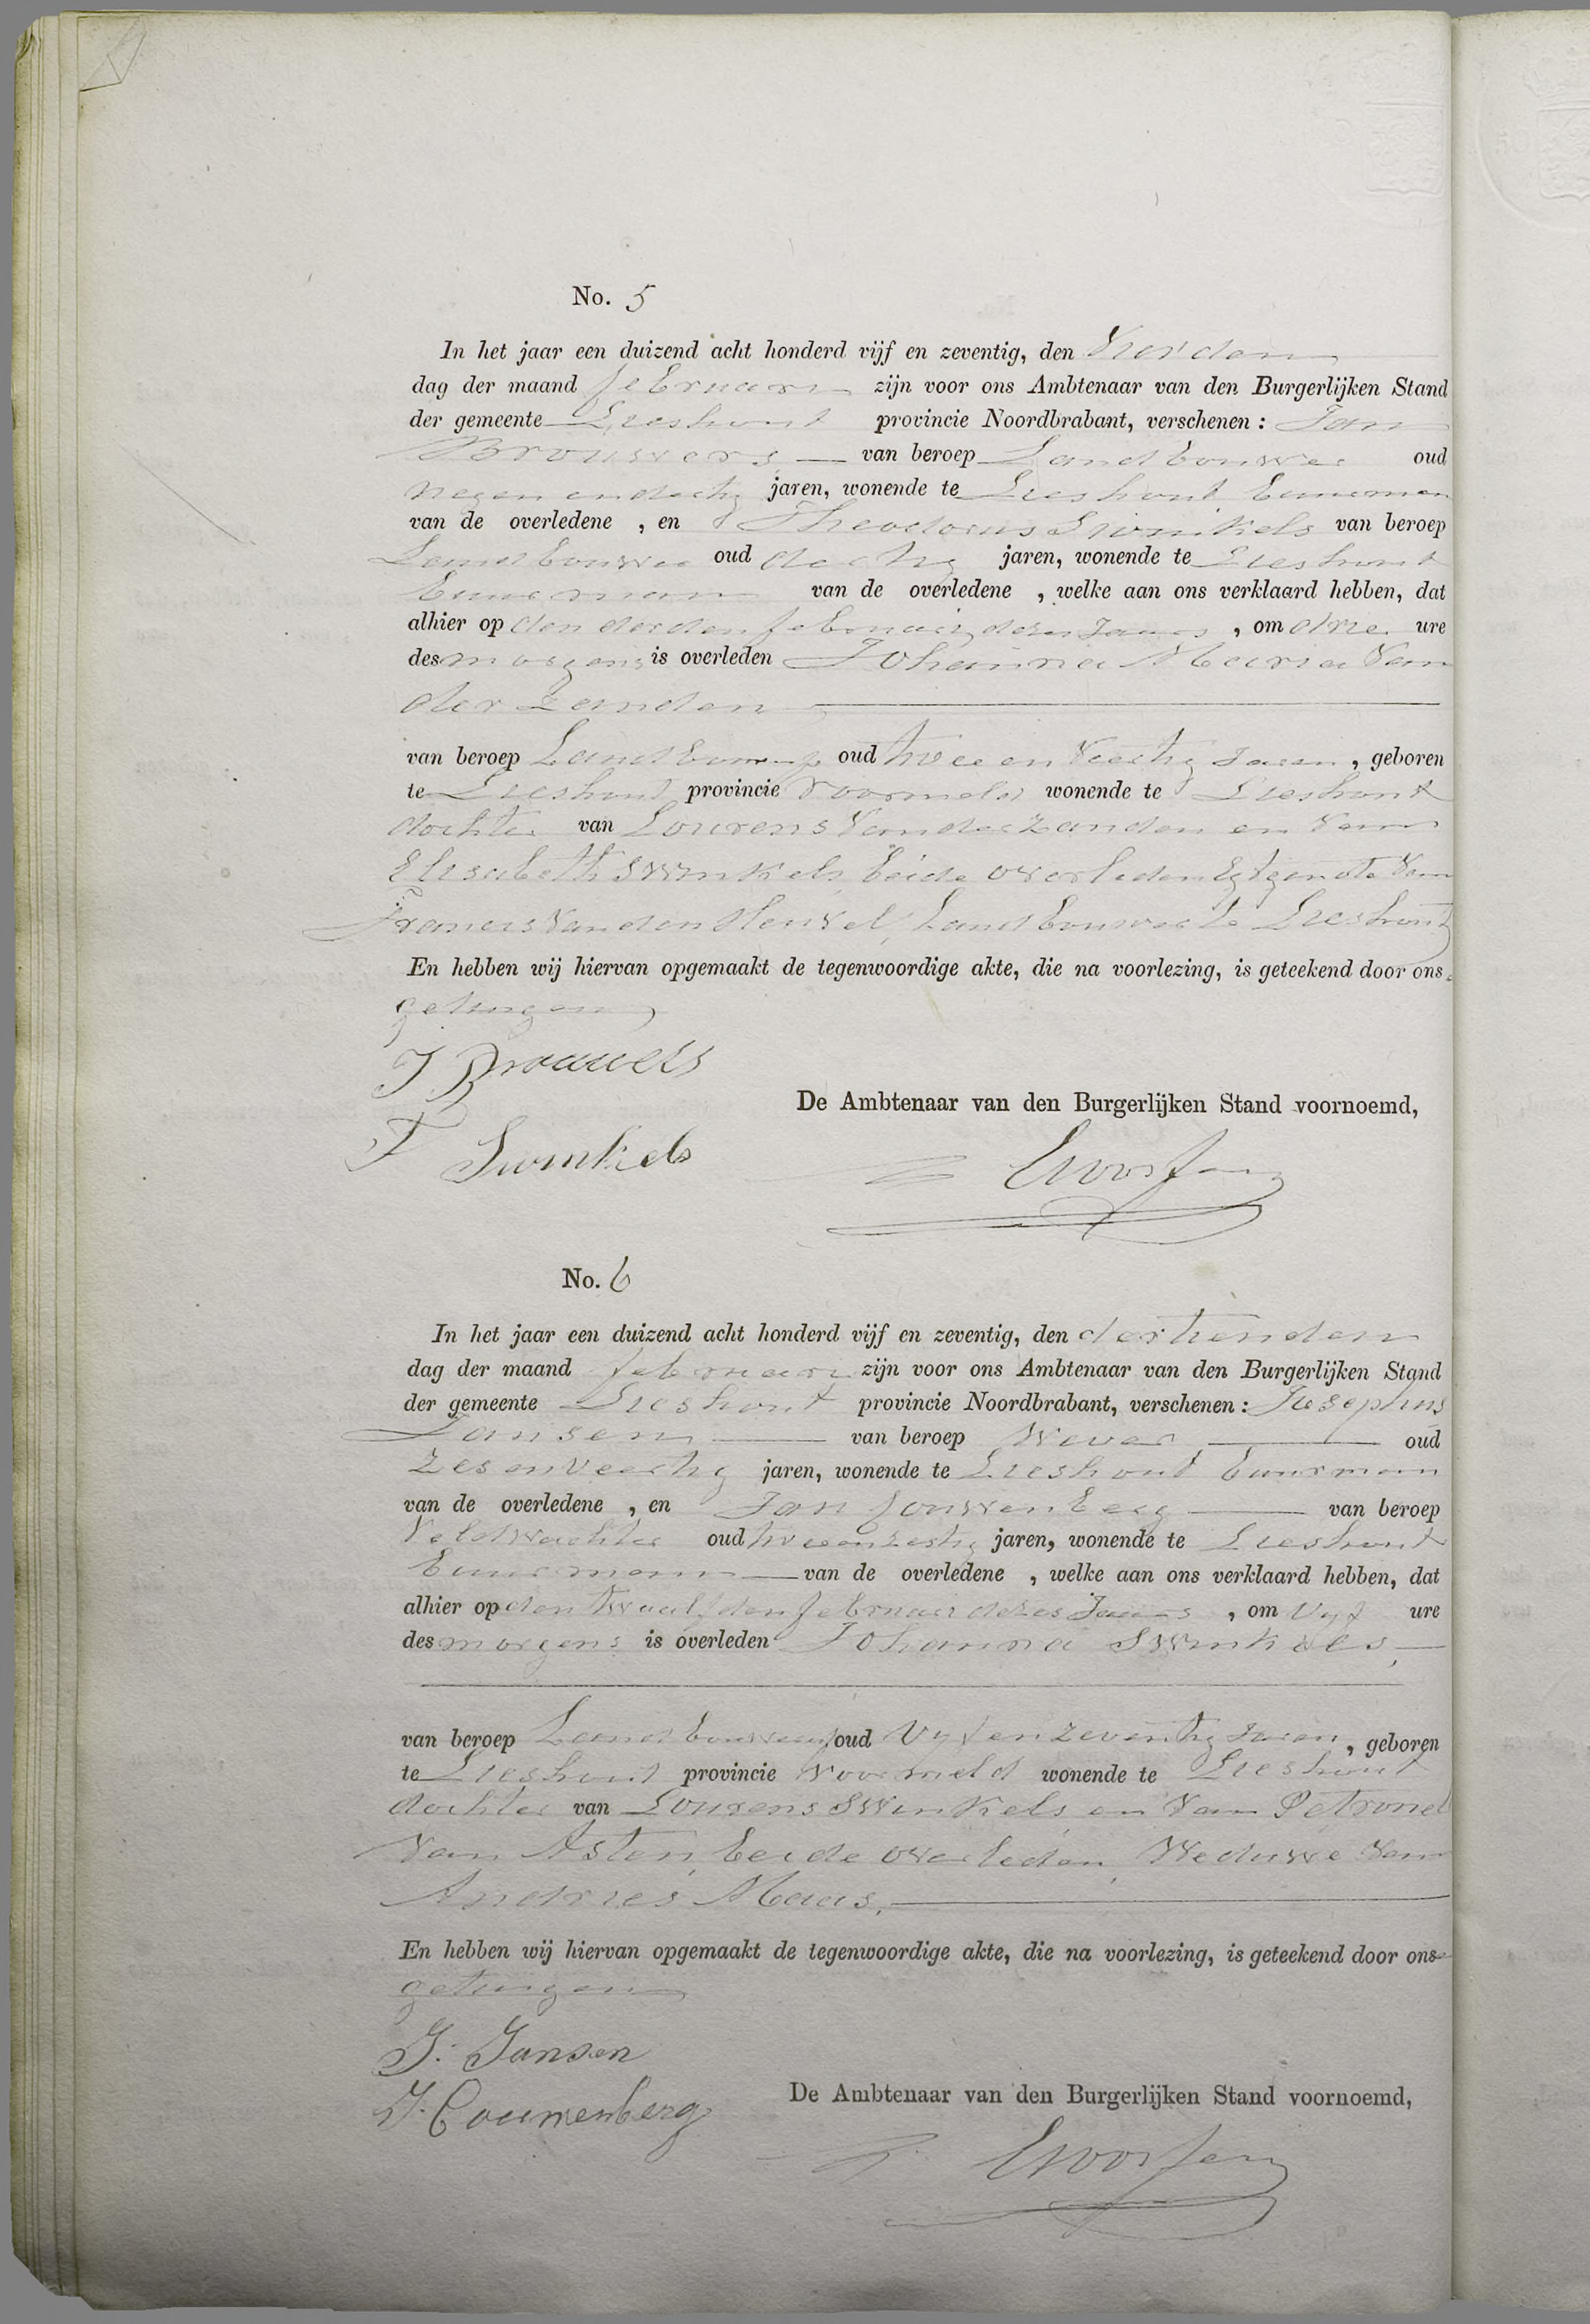 No. 5
In het jaar een duizend acht honderd vijf en zeventig, den Vierden
dag der maand februari zijn voor ons Ambtenaar van den Burgerlijken Stand
der gemeente Lieshout provincie Noordbrabant, verschenen: Jan
Brouwers van beroep Landbouwer oud
negen en dertig jaren, wonende te Lieshout buurman
van de overledene , en Theodorus Swinkels van beroep
Landbouwer oud dertig jaren, wonende te Lieshout
buurman van de overledene , welke aan ons verklaard hebben, dat
alhier op den derden februari dezes Jaars , om drie ure
des morgens is overleden Johanna Maria Van
der Zanden
van beroep Landbouwer oud twee en Veertig Jaren , geboren
te Lieshout provincie Voormeld wonende te Lieshout
dochter van Lourens Van der Zanden en Van
Elisabeth Swinkels, beide overleden Egtgenote Van
Francis Van den Heuvel, Landbouwer te Lieshout
En hebben wij hiervan opgemaakt de tegenwoordige akte, die na voorlezing, is geteekend door ons
getuigen
J Brouwers
T Swinkels
De Ambtenaar van den Burgerlijken Stand voornoemd,
No. 6
In het jaar een duizend acht honderd vijf en zeventig, den dertienden
dag der maand februari zijn voor ons Ambtenaar van den Burgerlijken Stand
der gemeente Lieshout provincie Noordbrabant, verschenen: Josephus
Jansen van beroep Wever oud
Zes en Veertig jaren, wonende te Lieshout buurman
van de overledene , en Jan Couwenberg van beroep
Veldwachter oud twee en zestig jaren, wonende te Lieshout
buurman van de overledene , welke aan ons verklaard hebben, dat
alhier op den twaalfden februari dezes Jaars , om Vyf ure
des morgens is overleden Johanna Swinkels,
van beroep Landbouwer oud Vyf en zeventig Jaren , geboren
te Lieshout provincie Voormeld wonende te Lieshout
dochter van Lourens Swinkels en Van Petronel
Van Asten, beide overleden, Weduwe Van
Andries Maas,
En hebben wij hiervan opgemaakt de tegenwoordige akte, die na voorlezing, is geteekend door ons
getuigen
J. Jansen
J. Couwenberg
De Ambtenaar van den Burgerlijken Stand voornoemd,